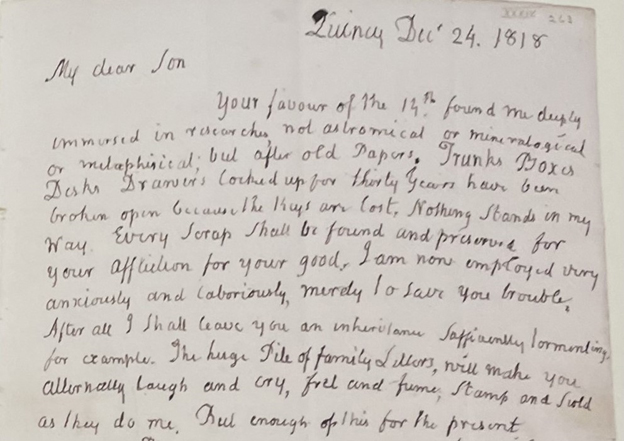 XXXIX 263
Quincy Decr 24. 1818
My dear Son
Your favour of the 14th. found me deeply
immersed in researches, not astromical or mineralogical
or metaphisical; but after old Papers. Trunks Boxes
Desks Drawers locked up for thirty Years have been
broken open because the Keys are lost. Nothing Stands in my
Way. Every Scrap Shall be found and preserved for
your Affliction for your good. I am now employed very
anxiously and laboriously, merely to Save you trouble.
After all I Shall leave you an inheritance Sufficiently tormenting,
for example. The huge Pile of family Letters, will make you
alternatly laugh and cry, fret and fume, Stamp and Scold
as they do me. But enough of this for the present